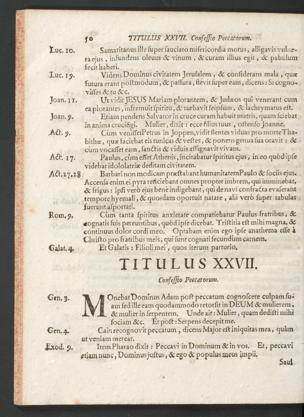 50 TITULUS XXVII. Confessio Peccatorum.
Luc. 10. Samaritanus ille super sauciato misericordia motus, alligavit vulne-
ra ejus, infundens oleum & vinum, & curam illius egit, & pabulum
fecit haberi.
Luc. 19. Videns Dominus civitatem Jerusalem, & considerans mala, quæ
futura erant postmodum, & passura, flevit super eam, dicens: Si cogno-
visses & tu &c.
Joan. 11. Ut vidit JESUS Mariam plorantem, & Judæos qui venerant cum
ea plorantes, infremuit spiritu, & turbavit seipsum, & lachrymatus est.
Joan. 9. Etiam pendens Salvator in cruce curam habuit matris, quam
in anima Mulier, dixit: ecce filius tuus, ostenso Joanne.
Act. 9. Cum venisset Petrus in Joppen, vidit flentes viduas pro morte Tha-
bithæ, quæ faciebat eis tunicas & vestes, & ponens genua sua oravit: &
cum vocasset eam, sanctis & viduis assignavit vivam.
Act. 17. Paulus, cum esset Athenis, incitabatur spiritus ejus, in eo quod ipse
videbat idololatriæ deditam civitatem.
Act. 27, 28 Barbari non modicam præstabant humanitatem Paulo & sociis ejus.
Accensa enim ei pyra reficiebant omnes propter imbrem, qui imminebat,
& frigus: ipsi verò ejus benè indigebant, qui de navi contracta evaserant
tempore hyemali, & quosdam oportuit natare, alii verò super tabulas
fuerunt asportati.
Rom. 9. Cum tanta spiritus anxietate compatiebatur Paulus fratribus, &
cognatis suis pereuntibus, quòd ipse dicebat. Tristitia est mihi magna, &
continuus dolor cordi meo. Optabam enim ego ipse anathema esse à
Christo pro fratribus meis, qui sunt cognati secundùm carnem.
Galat. 4. Et Galatis: Filioli mei, quos iterum parturio,
TITULUS XXVII.
Confessio Peccatorum.
Gen. 3. MOnebat Dominus Adam post peccatum cognoscere culpam su-
am sed ille eam quodammodo retorsit in DEUM & mulierem,
& mulier in serpentem. Unde ait: Mulier, quam dedisti mihi
sociam &c. Et post: Serpens decepit me.
Gen. 4. Cain recognovit peccatum, dicens Major est iniquitas mea, quàm
ut veniam merear.
Exod. 9. Item Pharao dixit: Peccavi in Dominum & in vos. Et, peccavi
etiam nunc, Dominus justus, & ego & populus meus impii.
Saul